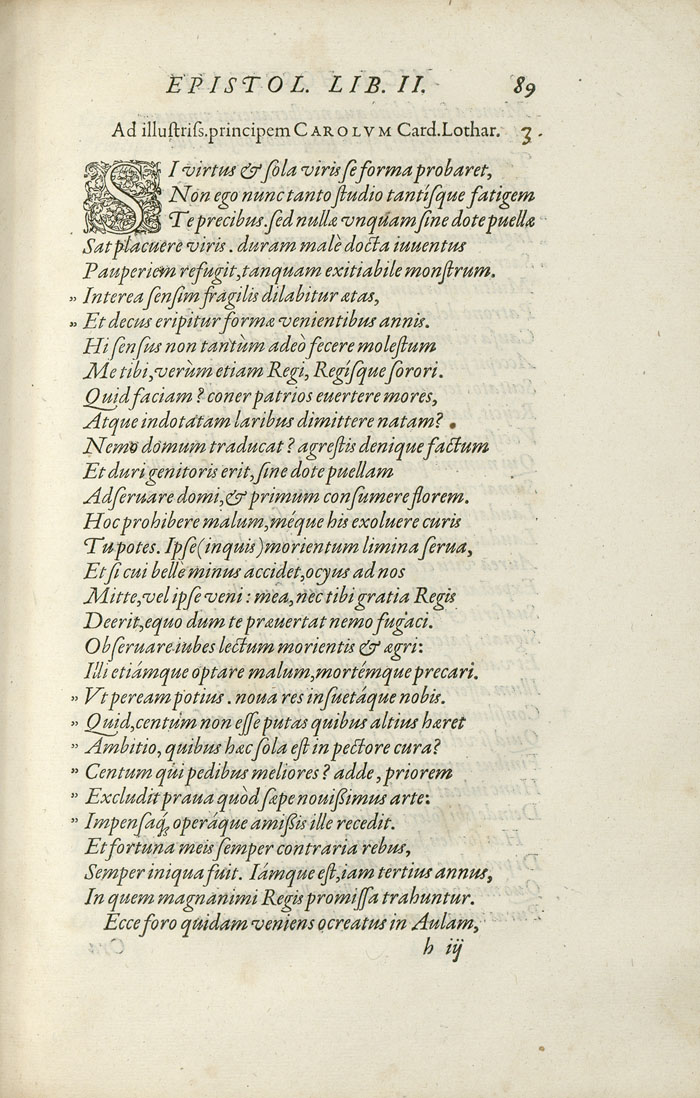 EPISTOL. LIB. II. 89
Ad illustriſs. principem CAROLVM Card. Lothar. 3.
SI virtus & ſola viris ſe forma probaret,
Non ego nunc tanto ſtudio tantíſque fatigem
Te precibus. ſed nullæ vnquam ſine dote puellæ
Sat placuere viris. duram malè docta iuuentus
Pauperiem refugit, tanquam exitiabile monſtrum.
„ Interea ſenſim fragilis dilabitur ætas,
„ Et decus eripitur formæ venientibus annis.
Hi ſenſus non tantùm adeò fecere moleſtum
Me tibi, verùm etiam Regi, Regíſque ſorori.
Quid faciam? coner patrios euertere mores,
Atque indotatam laribus dimittere natam?
Nemo domum traducat? agreſtis denique factum
Et duri genitoris erit, ſine dote puellam
Adſeruare domi, & primum conſumere florem.
Hoc prohibere malum, méque his exoluere curis
Tu potes. Ipſe (inquis) morientum limina ſerua,
Et ſi cui belle minus accidet, ocyus ad nos
Mitte, vel ipſe veni: mea, nec tibi gratia Regis
Deerit, equo dum te præuertat nemo fugaci.
Obſeruare iubes lectum morientis & ægri:
Illi etiámque optare malum, mortémque precari.
„ Vt peream potius. noua res inſuetáque nobis.
„ Quid, centum non eſſe putas quibus altius hæret
„ Ambitio, quibus hæc ſola eſt in pectore cura?
„ Centum qui pedibus meliores? adde, priorem
„ Excludit praua quòd ſæpe nouiſsimus arte:
„ Impenſaq́; operáque amiſsis ille recedit.
Et fortuna meis ſemper contraria rebus,
Semper iniqua fuit. Iámque eſt, iam tertius annus,
In quem magnanimi Regis promiſſa trahuntur.
Ecce foro quidam veniens ocreatus in Aulam,
h iij